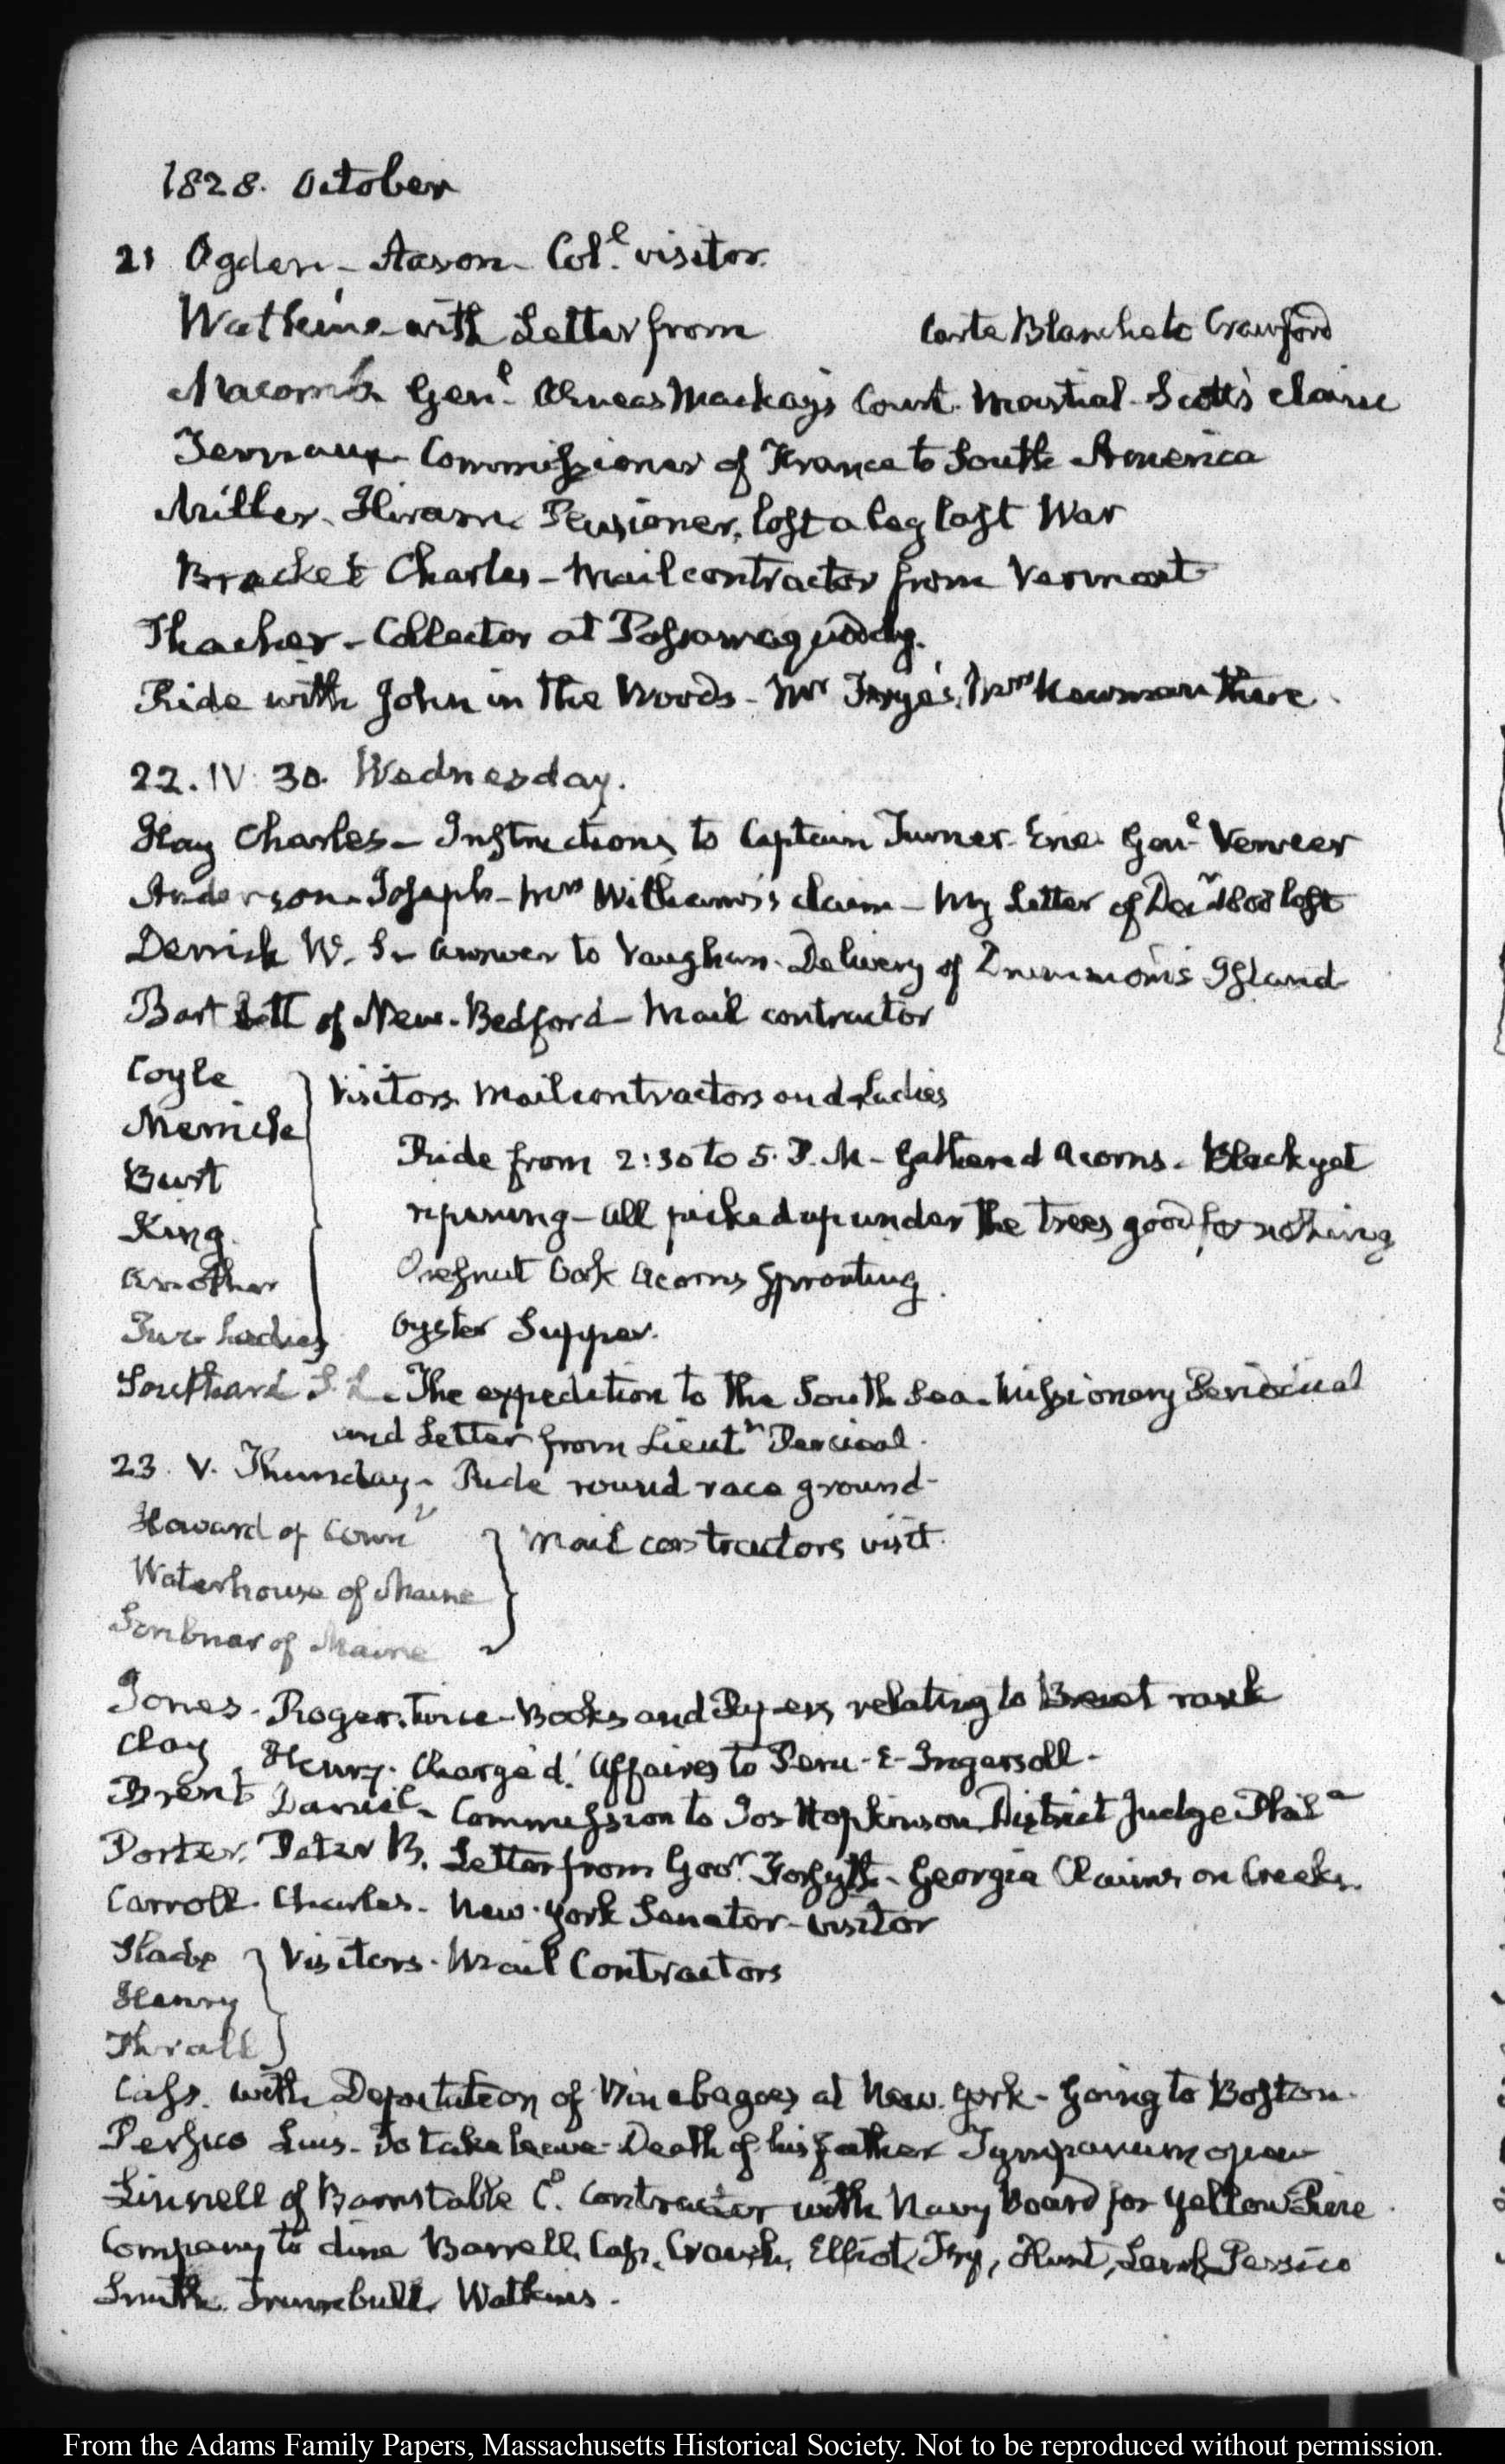 1828. October
21 Ogden - Aaron - Col.l visitor.
Watkins with Letter from Carte Blanche to Crawford
Macomb. Gen.l Aeneas Mackay's Court Martial - Scott's claim
Ternaux Commissioner of France to South America
Miller. Hiram Pensioner, lost a leg last War
Bracket Charles - Mail contractor from Vermont
Thacher - Collector at Passamaquoddy.
Ride with John in the Woods - Mr Frye's, Mrs Newman there.
22. IV. 30. Wednesday.
Hay Charles - Instructions to Captain Turner. Erie. Gen.l Verveer
Anderson Joseph - Mrs Williams's claim - My Letter of 1808 lost
Derrick W. S. Answer to Vaughan. Delivery of Drummond's Island
Bartlett of New-Bedford - Mail contractor
Coyle } Visitors. Mail contractors and Ladies
Merrick
Burt
King.
Another
Two Ladies
Ride from 2:30 to 5. P.M - Gathered acorns - Black yet
ripening - all picked up under the trees good for nothing
Chesnut Oak acorns sprouting.
Oyster Supper.
Southard S. L. - The expedition to the South Sea. Missionary Periodical
and Letter from Lieut.t Percival.
23. V. Thursday - Ride round race ground -
Howard of Conn.t } Mail contractors visit.
Waterhouse of Maine
Scribner of Maine
Jones - Roger. twice - Books and Papers relating to Brevet rank
Clay Henry. Chargé d'Affaires to Peru - E - Ingersoll -
Brent Daniel - Commission to Jos Hopkinson District Judge Phil.a
Porter. Peter B. Letter from Gov.r Forsyth - Georgia Claims on Creeks.
Carroll Charles - New-York Senator - visitor
Slade } Visitors. Mail Contractors
Henry
Thrall
Cass. with Deputation of Winebagoes at New York - going to Boston.
Persico Luis - To take leave - Death of his father Tympanum
Linnell of Barnstable C.o Contractor with Navy Board for Yellow Pine
Company to dine Barrell, Cass, Elliot, Fry, Hunt, Persico
Smith Trumbull Watkins.
From the Adams Family Papers, Massachusetts Historical Society. Not to be reproduced without permission.